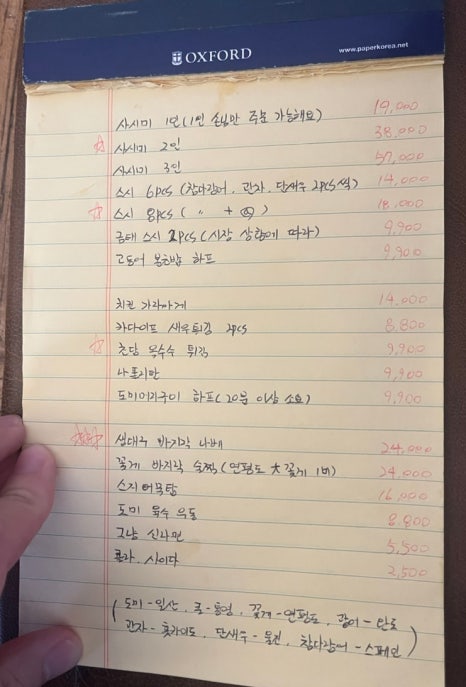 OXFORD
www.paperkorea.net
사시미 1인(1인 손님만 주문 가능해요) 19,000
☆ 사시미 2인 38,000
사시미 3인 57,000
스시 6pcs (참다랑어, 관자, 단새우 2pcs씩) 14,000
☆ 스시 8pcs ( 〃 + ) 18,000
금태 스시 2pcs (시장 상황에 따라) 9,900
고등어 봉초밥 하프 9,900
치킨 가라아게 14,000
카다이프 새우튀김 2pcs 8,800
☆ 초당 옥수수 튀김 9,900
나폴리탄 9,900
도미머리구이 하프(20분 이상 소요) 9,900
☆☆☆ 생대구 바지락 나베 24,000
꽃게 바지락 술찜(연평도 大꽃게 1미) 24,000
스지어묵탕 16,000
도미 육수 우동 8,800
그냥 신라면 5,500
콜라, 사이다 2,500
( 도미-일산, 굴-통영, 꽃게-연평도, 광어-완도
관자-홋카이도, 단새우-울진, 참다랑어-스페인 )